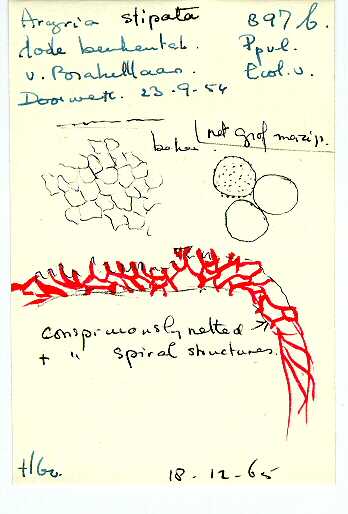 Arcyria stipata 897 b.
dode beukentak.
v. Borssellaan.
Doorwerth. 23-9-54
net grof mazig.
conspicuously netted
+ " spiral structures.
18-12-65